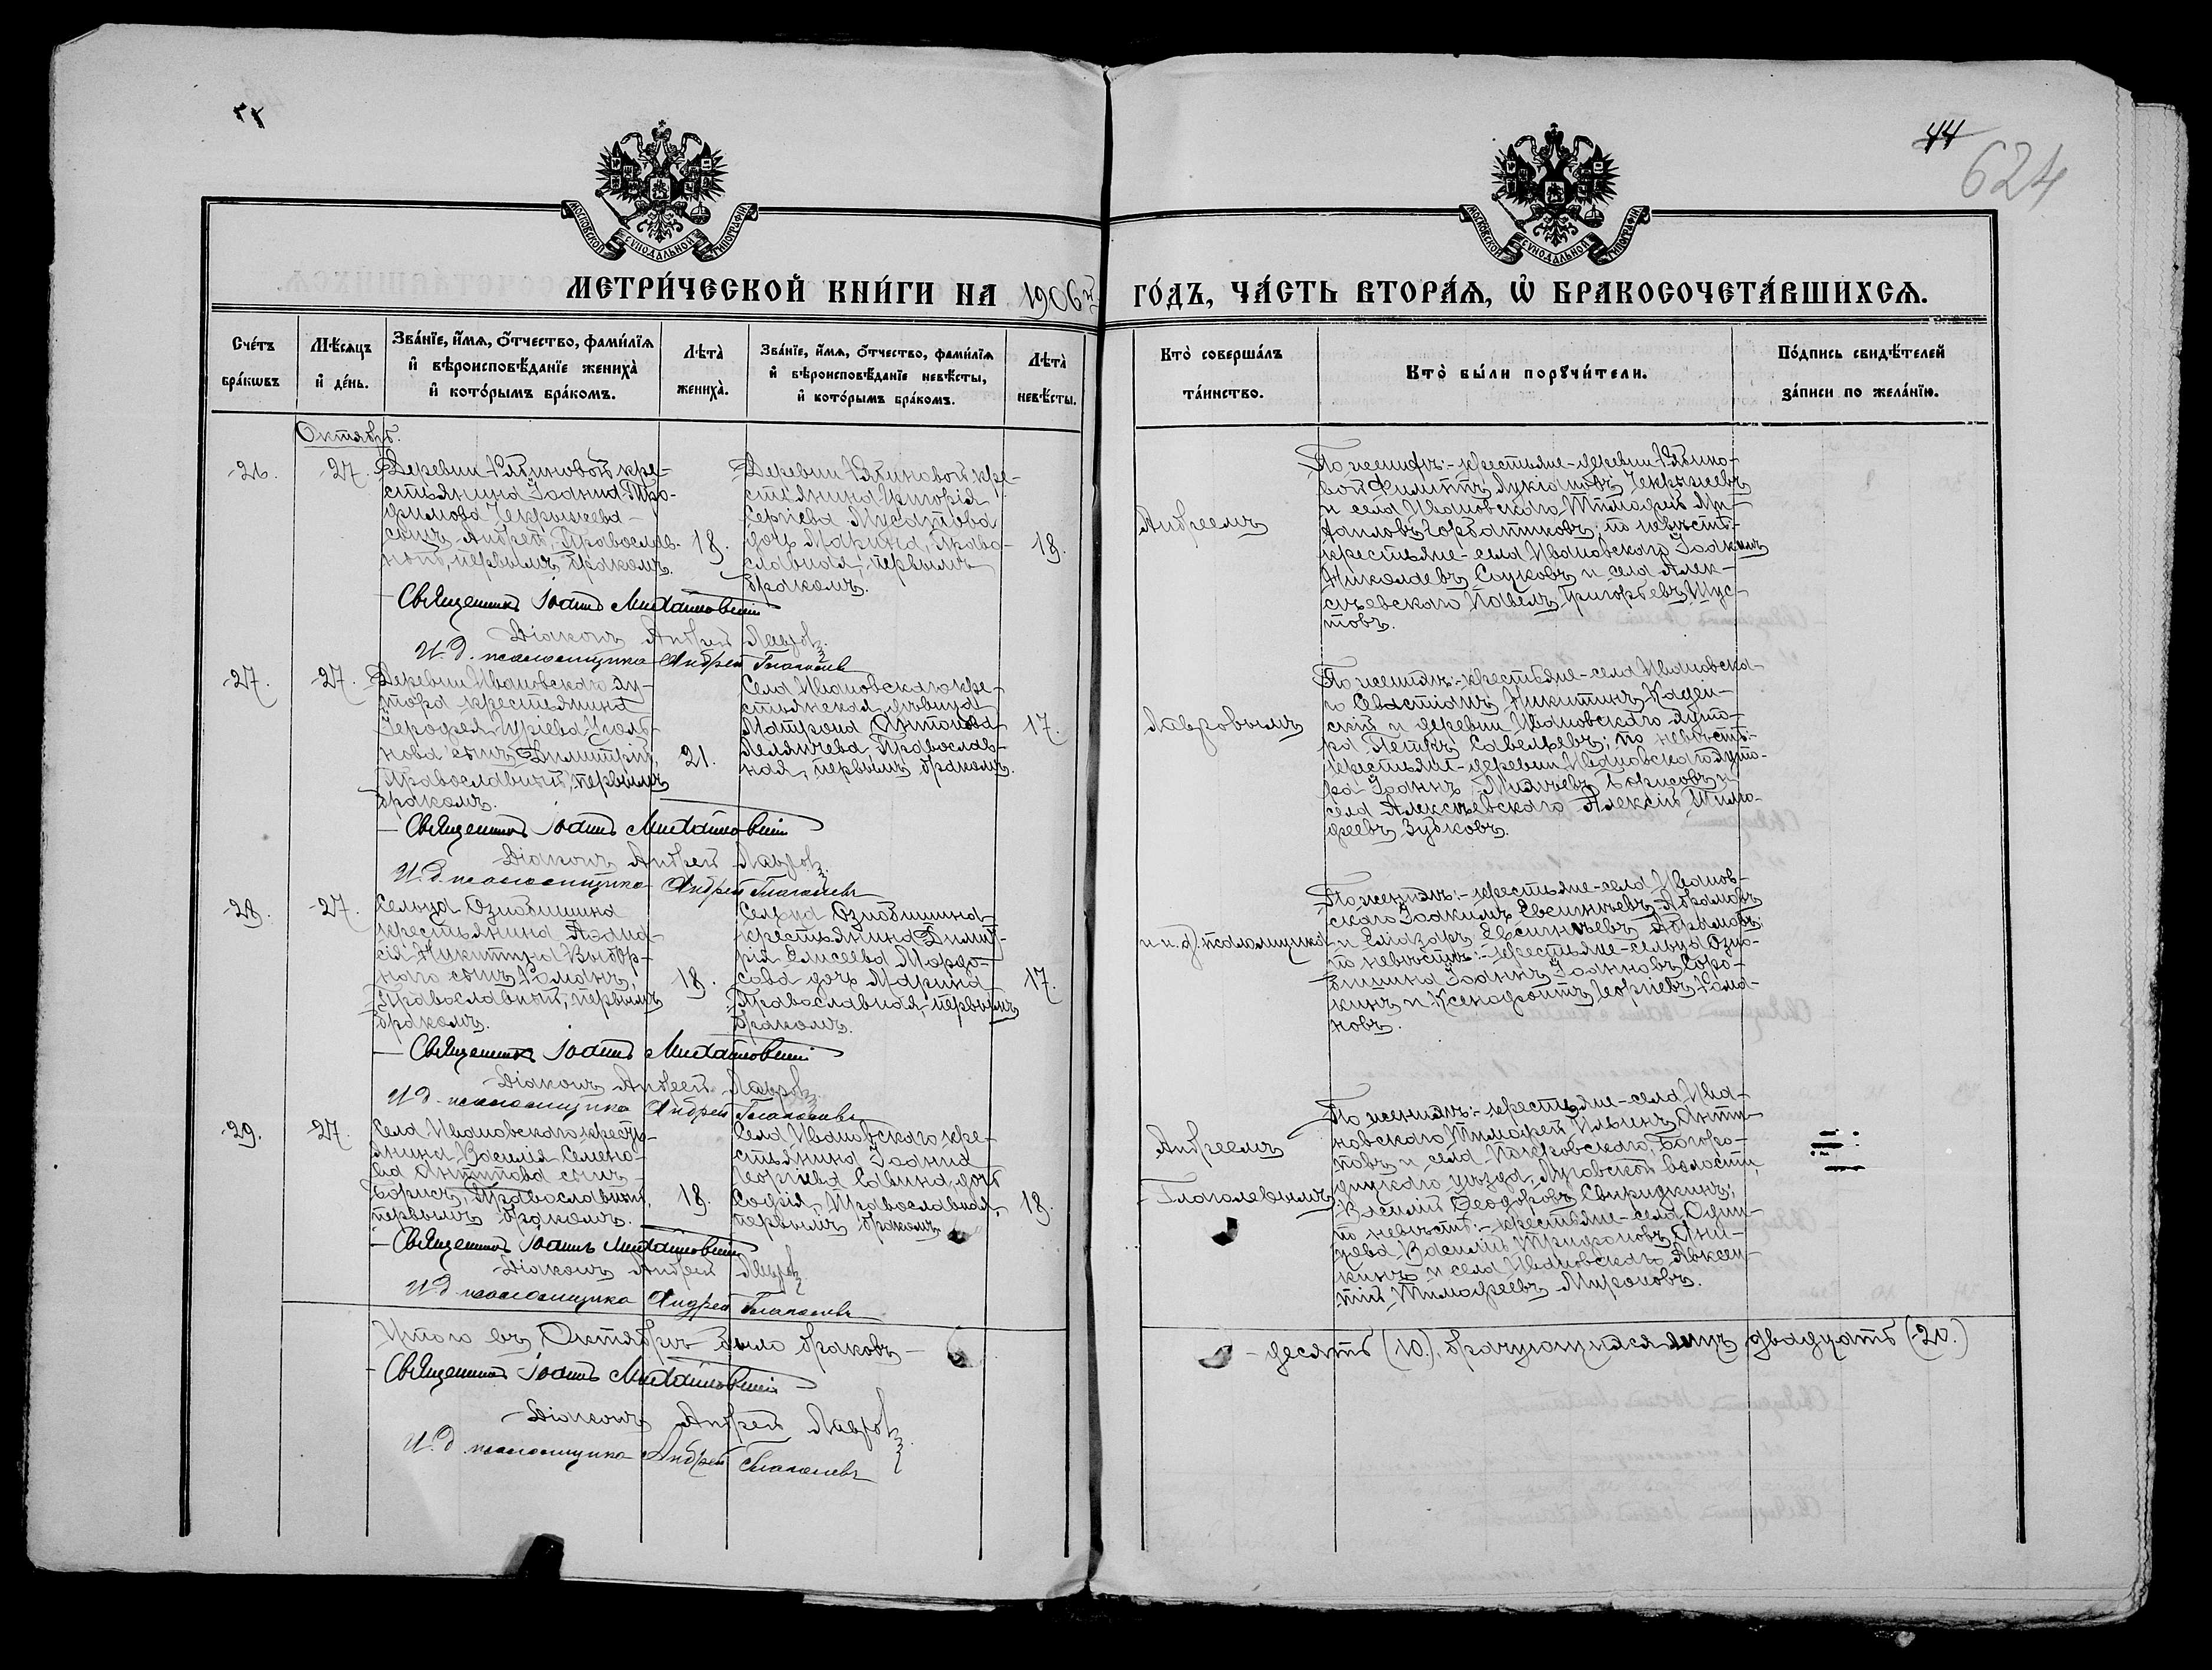 44
624
МОСКОВСКОЙ СѴНОДАЛЬНОЙ ТИПОГРАФІИ
МОСКОВСКОЙ СѴНОДАЛЬНОЙ ТИПОГРАФІИ
МЕТРИ́ЧЕСКОЙ КНИ́ГИ НА 1906й
ГО́ДЪ, ЧА́СТЬ ВТОРА́Ѧ, Ѡ҆ БРАКОСОЧЕТА́ВШИХСѦ.
Сче́тъ
бра́кѡвъ
Мѣ́сѧцъ
и҆ де́нь.
Зва́нїе, и҆́мѧ, о҆́тчество, фами́лїѧ
и҆ вѣроисповѣ́данїе жениха̀
и҆ кото́рымъ бра́комъ.
Лѣта̀
жениха̀.
Зва́нїе, и҆́мѧ, о҆́тчество, фами́лїѧ
и҆ вѣроисповѣ́данїе невѣ́сты,
и҆ кото́рымъ бра́комъ.
Лѣта̀
невѣ́сты.
Кто̀ соверша́лъ
та́инство.
Кто̀ бы́ли порꙋчи́тели.
По́дпись свидѣ́телей
за́писи по жела́нїю.
Октябрь.
26.
27.
Деревни Рябиновой кре-
стьянина Іоанна Тро-
фимова Чекрыжева
сынъ Андрей, Православ-
ный, первымъ бракомъ.
18.
Деревни Рябиновой кре-
стьянина Григорія
Сергіева Мусатова
дочь Марина, Право-
славная, первымъ
бракомъ.
18.
Андреемъ
По женихѣ:- крестьяне- деревни Рябино-
вой Филиппъ Лукіановъ Чекрыжевъ
и села Ивановскаго Тимофей
Горбатиковъ; по невѣстѣ-
крестьяне- села Ивановскаго Іоакимъ
Николаевъ Сауковъ и села Алек-
сѣевскаго Павелъ Григорьевъ Шус-
товъ.
Священникъ Іоаннъ Михайловскій
Діаконъ Андрей Лавровъ
И. д. псаломщика Андрей Глаголевъ
27.
27.
Деревни Ивановскаго ху-
тора крестьянина
Іерофея Гуріева
сынъ Димитрій,
Православный, первымъ
бракомъ.
21.
Села Ивановскаго кре-
стьянская дѣвица
Матрона Антонова
Православ-
ная, первымъ бракомъ.
17.
Лавровымъ
По женихѣ:- крестьяне- села Ивановска-
го Никитинъ
и деревни Ивановскаго хуто-
ра Петръ Савельевъ; по невѣстѣ-
крестьяне- деревни Ивановскаго хуто-
ра Іоаннъ Борисовъ и
села Алексѣевскаго Алексій Тимо-
феевъ Зубковъ.
Священникъ Іоаннъ Михайловскій
Діаконъ Андрей Лавровъ
И. д. псаломщика Андрей Глаголевъ
28.
27.
Сельца Ознобишина
крестьянина
Никитина Выбор-
наго сынъ Романъ,
Православный, первымъ
бракомъ.
18.
Сельца Ознобишина
крестьянина Димит-
рія Елисеева Мордо-
сова дочь Марина
Православная, первымъ
бракомъ.
17.
и и. д. псаломщика
По женихѣ:- крестьяне- села Иванов-
скаго Іоакимъ Евсигнѣевъ Абрамовъ
и Елиазаръ Евсигнѣевъ Абрамовъ;
по невѣстѣ:- крестьяне- сельца Озно-
бишина Іоаннъ Іоанновъ Соро-
кинъ и Ксенофонтъ Георгіевъ Рома-
новъ.
Священникъ Іоаннъ Михайловскій
Діаконъ Андрей Лавровъ
И. д. псаломщика Андрей Глаголевъ
29.
27.
Села Ивановскаго кресть-
янина Василія Семено-
ва Антипова сынъ
Борисъ, Православный,
первымъ бракомъ.
18.
Села Ивановскаго кре-
стьянина Іоанна
Георгіева Савина дочь
Софія, Православная,
первымъ бракомъ.
18.
Андреемъ
Глаголевымъ
По женихѣ:- крестьяне- села Ива-
новскаго Тимофей Ильинъ Анти-
повъ и села Покровскаго, Богоро-
дицкаго уѣзда, Луговской волости,
Василій Ѳеодоровъ Свиридкинъ;
по невѣстѣ:- крестьяне- села Один-
цева Василій Трифоновъ Ани-
кинъ и села Ивановскаго Авксен-
тій Тимофеевъ Мироновъ.
Священникъ Іоаннъ Михайловскій
Діаконъ Андрей Лавровъ
И. д. псаломщика Андрей Глаголевъ
Итого въ Октябрѣ было браковъ -
- десять (10), брачующихся лицъ двадцать (20.)
Священникъ Іоаннъ Михайловскій
Діаконъ Андрей Лавровъ
И. д. псаломщика Андрей Глаголевъ